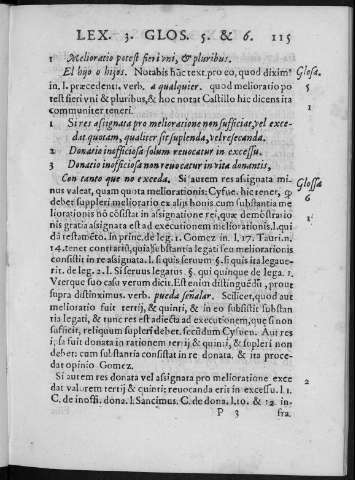 LEX. 3. GLOS. 5. & 6. 115
1 Melioratio potest fieri vni, & pluribus.
El hijo o hijos. Notabis hãc text. pro eo, quod dixim⁹ Glosa.
in. l. præcedenti. verb. a qualquier. quod melioratio po 5
test fieri vni & pluribus, & hoc notat Castillo hic dicens ita 1
communiter teneri.
1 Si res assignata pro melioratione non sufficiat, vel exce-
dat quotam, qualiter sit suplenda, vel resecanda.
2 Donatio inofficiosa solum reuocatur in excessu.
3 Donatio inofficiosa non reuocatur in vita donantis,
Con tanto que no exceda. Si autem res assignata mi Glossa
nus valeat, quam quota meliorationis: Cyfue. hic tener, q; 6
debet suppleri melioratio ex alijs bonis cum substantia me
liorationis nõ cõsistat in assignatione rei, quæ demõstratio 1
nis gratia assignata est ad executionem meliorationis. l. qui
dã testamẽto. in princ. de leg. 1. Gomez in. l. 17. Tauri. n.
14. tenet contrariũ, quia substantia legati seu meliorationis
consistit in re assignata. l. si quis seruum. §. si quis ita legaue-
rit. de leg. 2. l. Si seruus legatus §. qui quinque de lega. 1.
Vterque suo casu verum dicit. Est enim distinguẽdũ, prout
supra distinximus. verb. pueda señalar. Scilicet, quod aut
melioratio fuit tertij, & quinti, & in eo subsistit substan
tia legati, & tunc res est adiecta ad executionem, que si non
sufficit, reliquum supleri debet. secũdum Cyfueu. Aut res
i, sa fuit donata in rationem tertij & quinti, & supleri non
deber: cum substantia consistat in re donata. & ita proce-
dat opinio Gomez.
Si autem res donata vel assignata pro melioratione exce 2
dat valorem tertij & quinti: reuocanda erit in excessu. l. 1.
C. de inoffi. dona. l. Sancimus. C. de dona. l. 10. & 12. in-
P 3 fra.